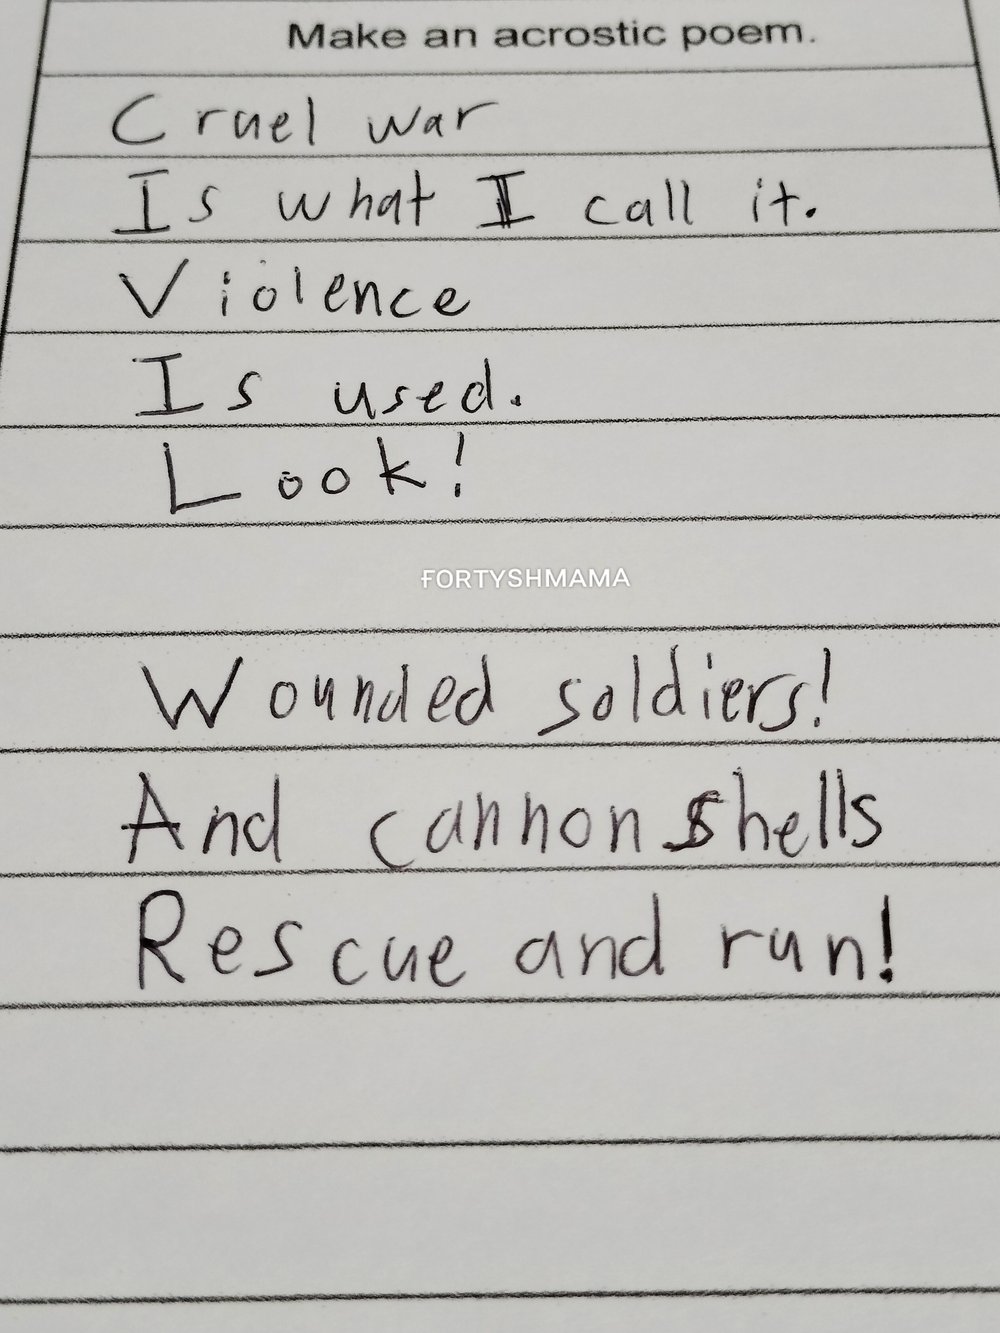 Make an acrostic poem.
Cruel war
Is what I call it.
Violence
Is used.
Look!
FORTYSHMAMA
Wounded soldiers!
And cannon shells
Rescue and run!